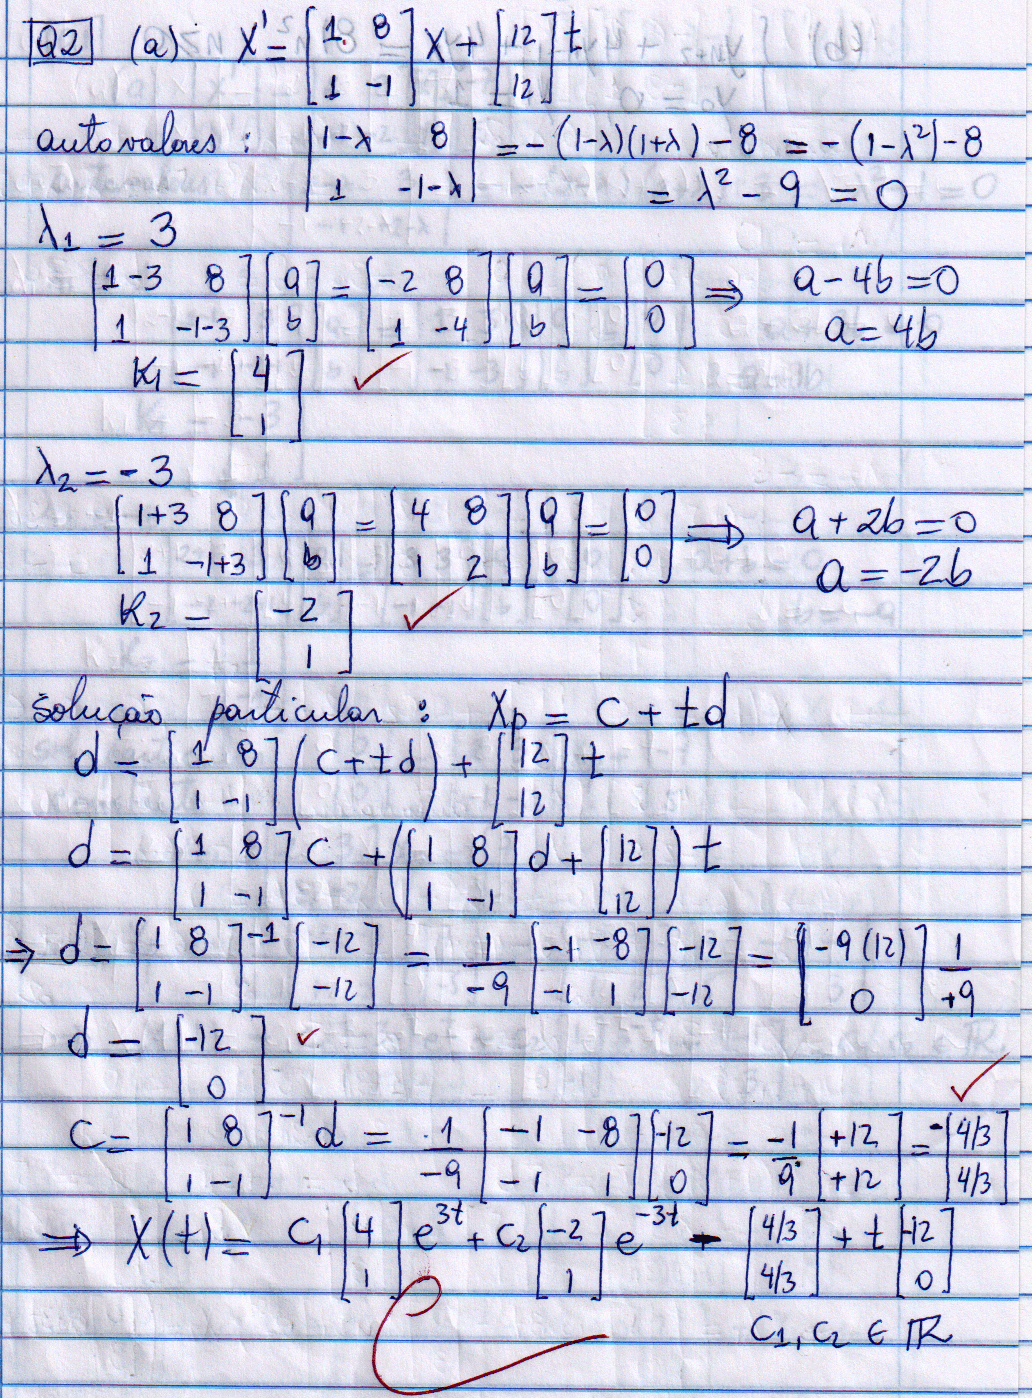 Q2 (a) X' = [1 8; 1 -1] X + [12; 12] t
autovalores: |1-λ 8; 1 -1-λ| = -(1-λ)(1+λ) - 8 = -(1-λ²) - 8
= λ² - 9 = 0
λ₁ = 3
[1-3 8; 1 -1-3] [a; b] = [-2 8; 1 -4] [a; b] = [0; 0] ⇒ a - 4b = 0
a = 4b
K₁ = [4; 1] ✓
λ₂ = -3
[1+3 8; 1 -1+3] [a; b] = [4 8; 1 2] [a; b] = [0; 0] ⇒ a + 2b = 0
a = -2b
K₂ = [-2; 1] ✓
solução particular: Xp = c + td
d = [1 8; 1 -1] (c + td) + [12; 12] t
d = [1 8; 1 -1] c + ([1 8; 1 -1] d + [12; 12]) t
⇒ d = [1 8; 1 -1]⁻¹ [-12; -12] = 1/-9 [-1 -8; -1 1] [-12; -12] = [-9(12); 0] 1/+9
d = [-12; 0] ✓
✓
c = [1 8; 1 -1]⁻¹ d = 1/-9 [-1 -8; -1 1] [-12; 0] = -1/9 [+12; +12] = -[4/3; 4/3]
⇒ X(t) = c₁ [4; 1] e³ᵗ + c₂ [-2; 1] e⁻³ᵗ - [4/3; 4/3] + t [-12; 0]
c₁, c₂ ∈ ℝ